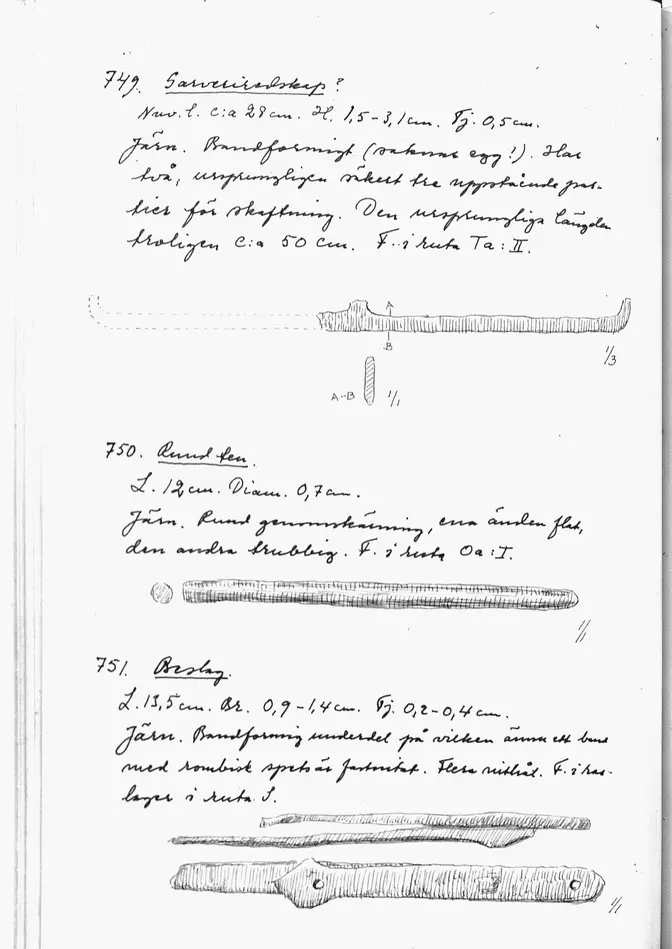 749. Garveriredskap?
Nuv. l. c:a 28 cm. H. 1,5-3,1 cm. Tj. 0,5 cm.
Järn. Bandformigt (saknar egg!). Har
två, ursprungligen säkert tre uppstående par-
tier för skaftning. Den ursprungliga längden
troligen c:a 50 cm. F. i ruta Ta:II.
A
B
1/3
A-B 1/1
750. Rund ten.
L. 12 cm. Diam. 0,7 cm.
Järn. Rund genomskärning, ena änden flat,
den andra trubbig. F. i ruta Oa:I.
1/1
751. Beslag.
L. 13,5 cm. Br. 0,9-1,4 cm. Tj. 0,2-0,4 cm.
Järn. Bandformig underdel på vilken ännu ett band
med rombisk spets är fastnitat. Flera nithål. F. i ras-
lager i ruta S.
1/1